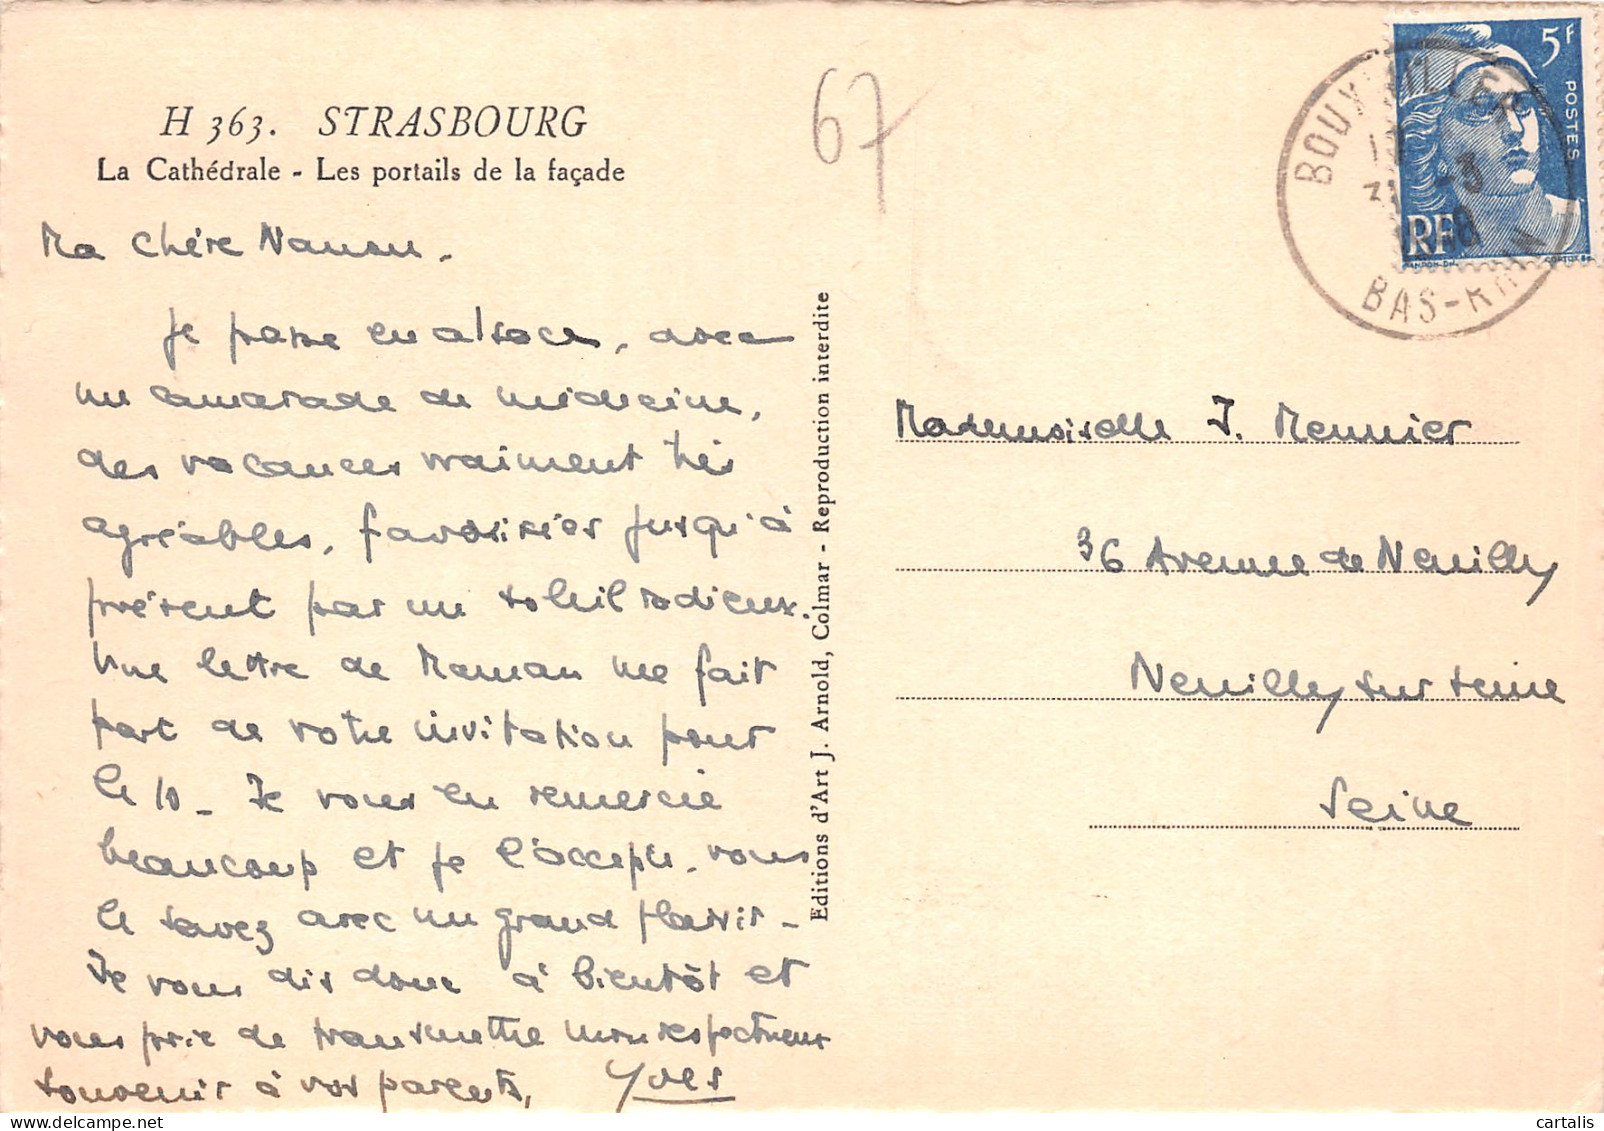 H 363. STRASBOURG
La Cathédrale - Les portails de la façade
67
Ma chère Nanou.
Je passe en alsace, avec
un camarade de médecine,
des vacances vraiment très
agréables, favorisées jusqu'à
présent par un soleil radieux.
Une lettre de Maman me fait
part de votre invitation pour
le 10 - Je vous en remercie
beaucoup et je l'accepte, vous
le savez avec un grand plaisir -
Je vous dis donc à bientôt et
vous prie de transmettre mon respectueux
souvenir à vos parents,
Yves
Editions d'Art J. Arnold, Colmar - Reproduction interdite
5F
POSTES
RF
BOUXWILLER
-3
BAS-RHIN
Mademoiselle J. Meunier
36 Avenue de Neuilly
Neuilly sur seine
Seine
cartalis